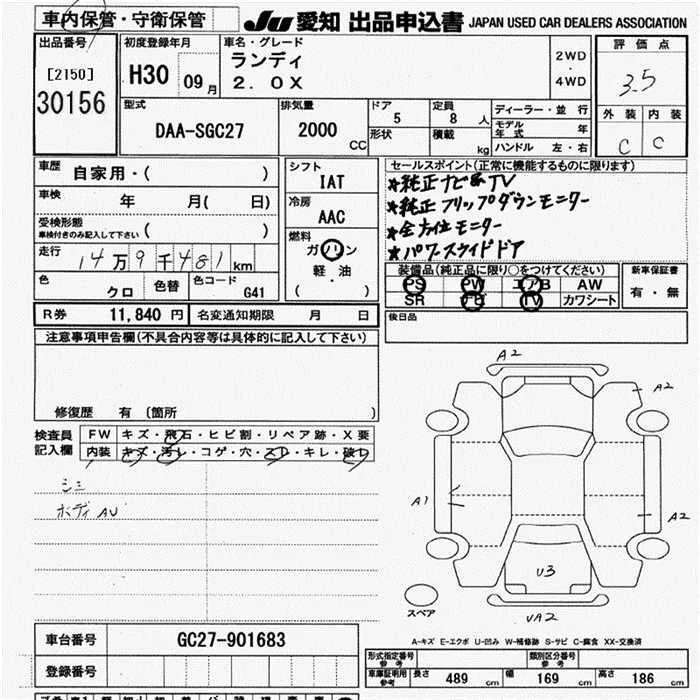 車内保管・守衛保管
JU 愛知 出品申込書 JAPAN USED CAR DEALERS ASSOCIATION
出品番号
[2150]
30156
初度登録年月
H30 09 月
車名・グレード
ランディ
2．0X
2WD
・
4WD
評価点
3.5
外装 内装
C C
型式
DAA-SGC27
排気量
2000 CC
ドア
5
形状
定員
8 人
積載
kg
ディーラー・並行
モデル年式 年
ハンドル 左・右
車歴
自家用・( )
車検
年 月( 日)
受検形態
車検付きのみ記入して下さい ( )
走行
14万9千481km
色
クロ
色替
色コード
G41
シフト
IAT
冷房
AAC
燃料
ガソリン
軽・油
( )
セールスポイント(正常に機能するものに限ります)
★純正ナビ&TV
★純正フリップダウンモニター
★全方位モニター
★パワースライドドア
装備品(純正品に限り○をつけてください)
PS PW エアB AW
SR ナビ TV カワシート
新車保証書
有・無
R券 11,840 円
名変通知期限 月 日
後日品
注意事項申告欄(不具合内容等は具体的に記入して下さい)
修復歴 有 (箇所 )
検査員記入欄
FW キズ・飛石・ヒビ割・リペア跡・X要
内装 キズ・汚レ・コゲ・穴・スレ・キレ・破レ
シミ
ボディ AU
A2
A2
A1
A2
U3
UA2
スペア
A-キズ E-エクボ U-凹み W-補修跡 S-サビ C-腐食 XX-交換済
車台番号
GC27-901683
登録番号
形式指定番号
参考
類別区分番号
参考
車庫証明用
参考
長さ 489 cm
幅 169 cm
高さ 186 cm